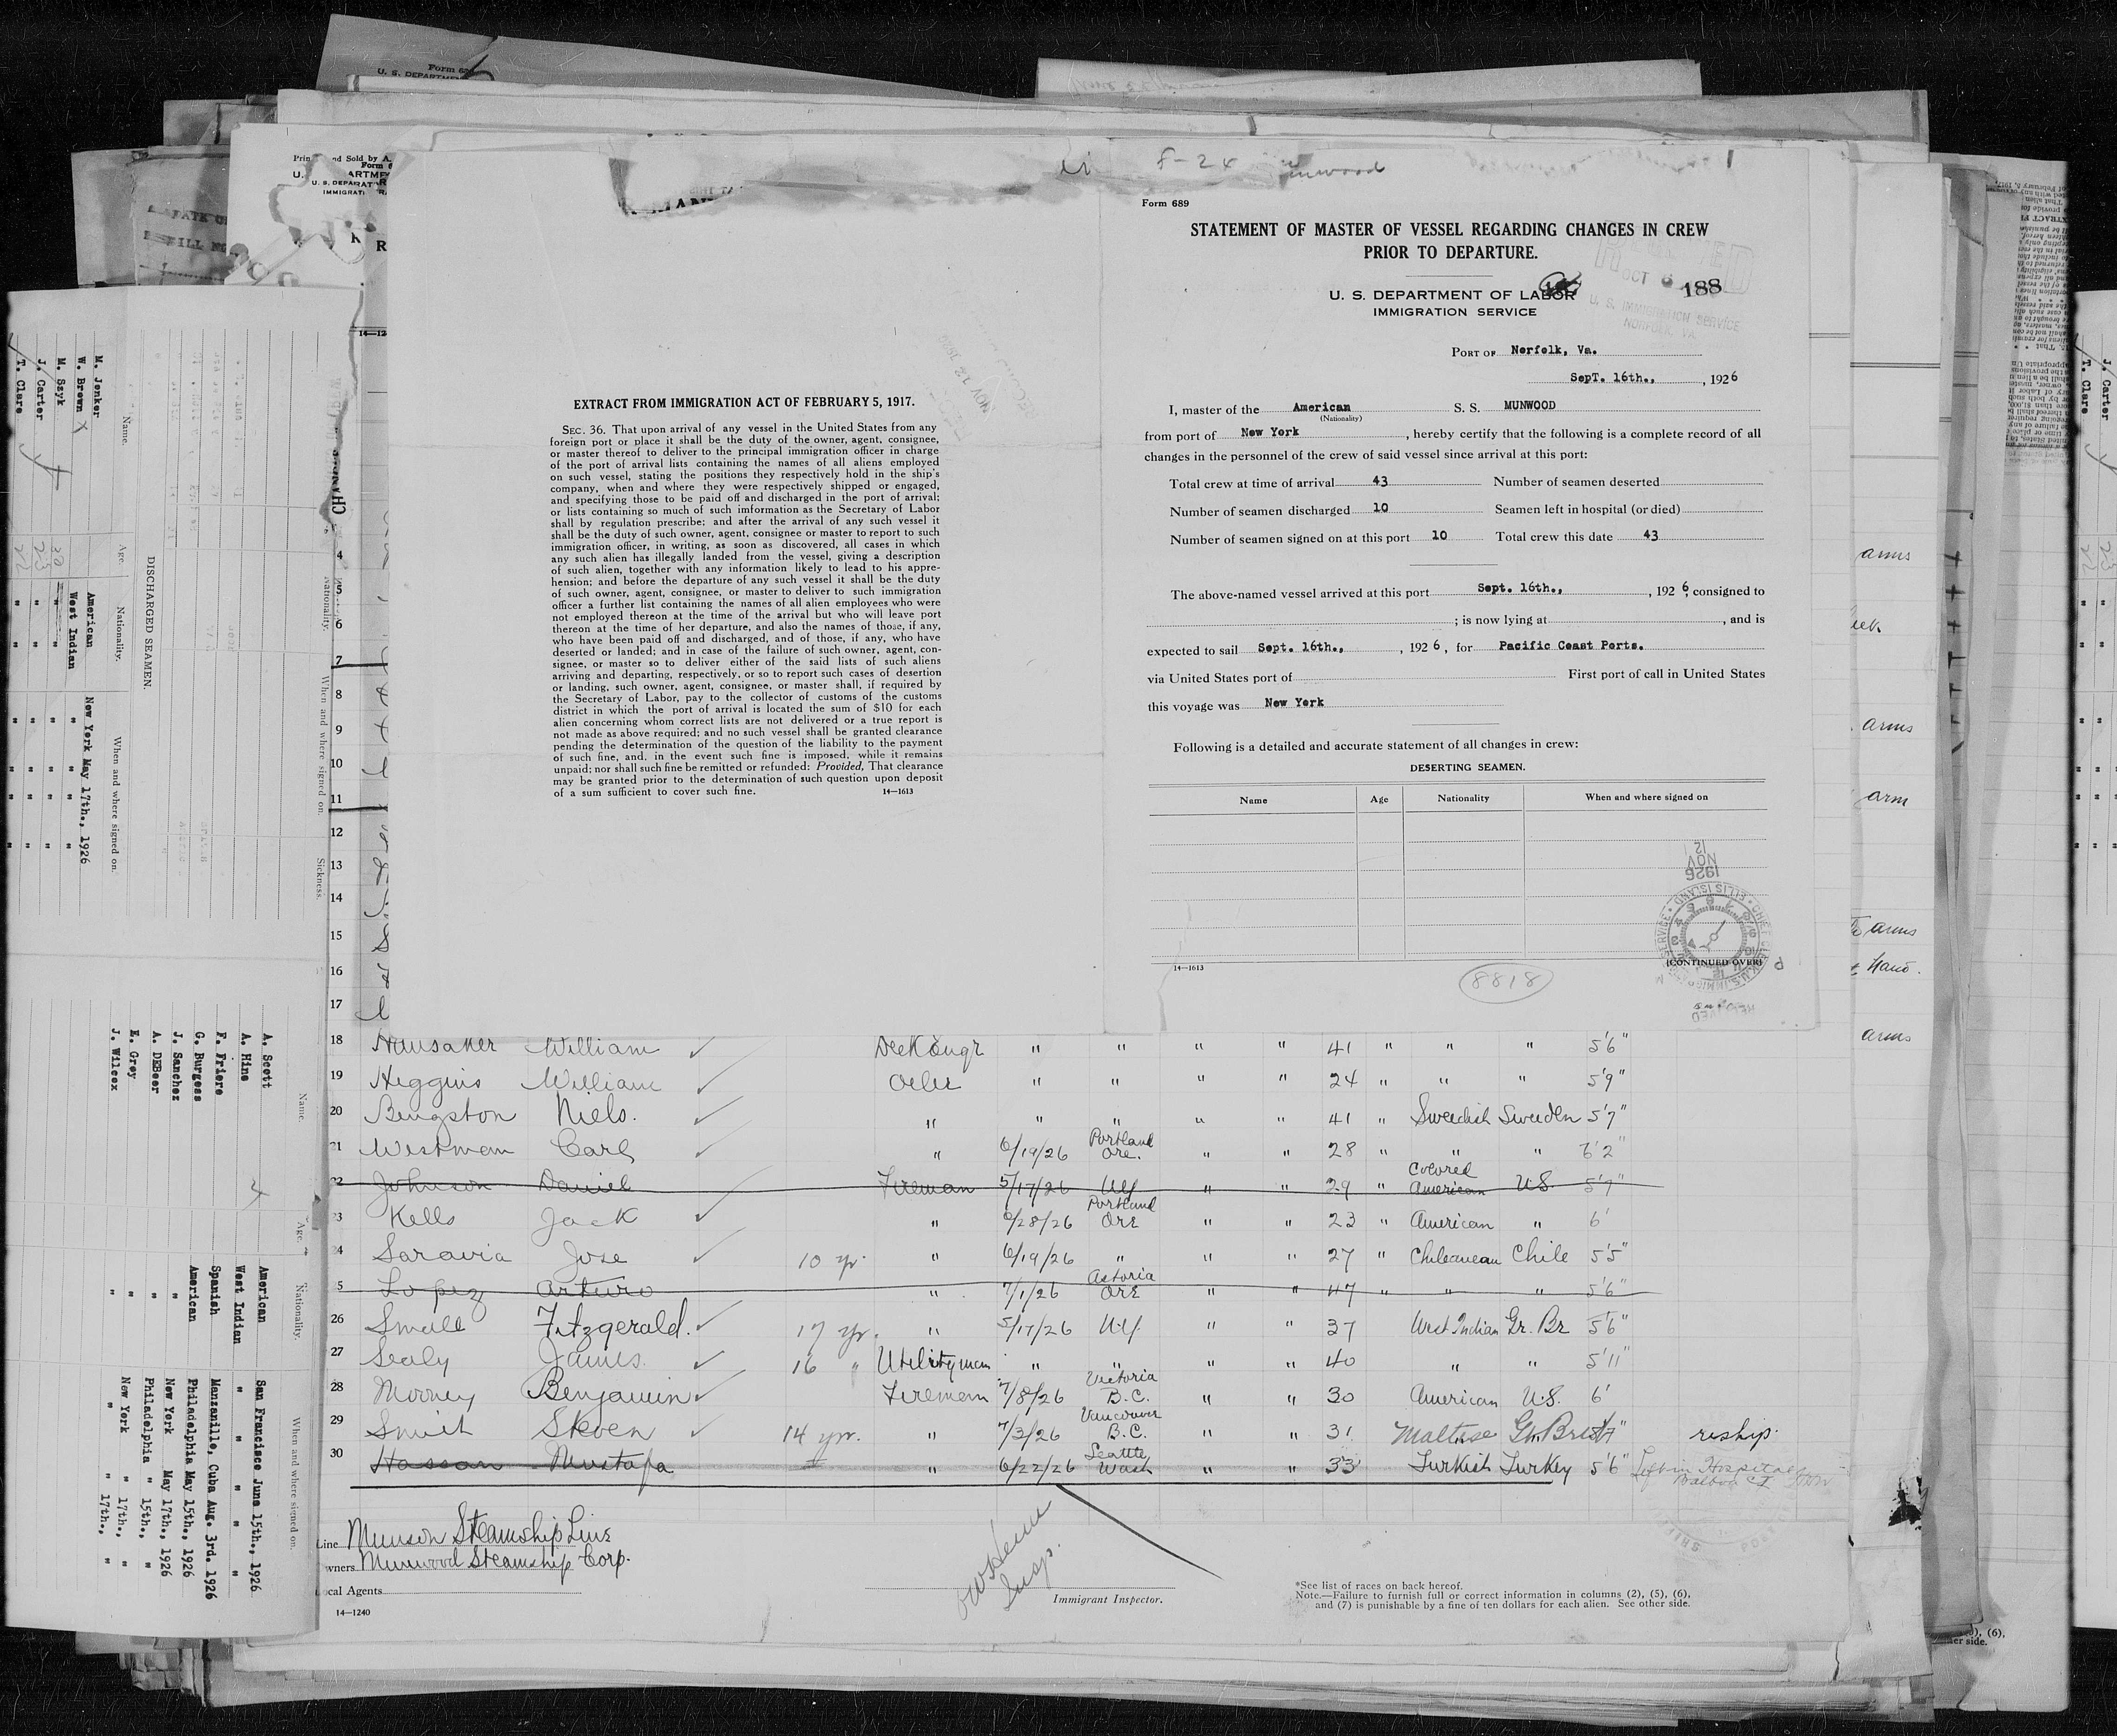 Form 689
STATEMENT OF MASTER OF VESSEL REGARDING CHANGES IN CREW
PRIOR TO DEPARTURE.
U. S. DEPARTMENT OF LABOR
IMMIGRATION SERVICE
OCT 6
188
U. S. IMMIGRATION SERVICE
NORFOLK, VA.
PORT OF Norfolk, Va.
SepT. 16th., , 1926
I, master of the American S. S. MUNWOOD
(Nationality)
from port of New York , hereby certify that the following is a complete record of all
changes in the personnel of the crew of said vessel since arrival at this port:
Total crew at time of arrival 43 Number of seamen deserted
Number of seamen discharged 10 Seamen left in hospital (or died)
Number of seamen signed on at this port 10 Total crew this date 43
The above-named vessel arrived at this port Sept. 16th., , 1926, consigned to
; is now lying at , and is
expected to sail Sept. 16th., , 1926, for Pacific Coast Ports.
via United States port of First port of call in United States
this voyage was New York
Following is a detailed and accurate statement of all changes in crew:
DESERTING SEAMEN.
Name Age Nationality When and where signed on
14—1613
8818
(CONTINUED OVER)
12
NOV
1926
EXTRACT FROM IMMIGRATION ACT OF FEBRUARY 5, 1917.
SEC. 36. That upon arrival of any vessel in the United States from any
foreign port or place it shall be the duty of the owner, agent, consignee,
or master thereof to deliver to the principal immigration officer in charge
of the port of arrival lists containing the names of all aliens employed
on such vessel, stating the positions they respectively hold in the ship's
company, when and where they were respectively shipped or engaged,
and specifying those to be paid off and discharged in the port of arrival;
or lists containing so much of such imformation as the Secretary of Labor
shall by regulation prescribe; and after the arrival of any such vessel it
shall be the duty of such owner, agent, consignee or master to report to such
immigration officer, in writing, as soon as discovered, all cases in which
any such alien has illegally landed from the vessel, giving a description
of such alien, together with any information likely to lead to his appre-
hension; and before the departure of any such vessel it shall be the duty
of such owner, agent, consignee, or master to deliver to such immigration
officer a further list containing the names of all alien employees who were
not employed thereon at the time of the arrival but who will leave port
thereon at the time of her departure, and also the names of those, if any,
who have been paid off and discharged, and of those, if any, who have
deserted or landed; and in case of the failure of such owner, agent, con-
signee, or master so to deliver either of the said lists of such aliens
arriving and departing, respectively, or so to report such cases of desertion
or landing, such owner, agent, consignee, or master shall, if required by
the Secretary of Labor, pay to the collector of customs of the customs
district in which the port of arrival is located the sum of $10 for each
alien concerning whom correct lists are not delivered or a true report is
not made as above required; and no such vessel shall be granted clearance
pending the determination of the question of the liability to the payment
of such fine, and, in the event such fine is imposed, while it remains
unpaid; nor shall such fine be remitted or refunded: Provided, That clearance
may be granted prior to the determination of such question upon deposit
of a sum sufficient to cover such fine. 14—1613
DISCHARGED SEAMEN.
Name. Age. Nationality. When and where signed on.
M. Jenker American New York May 17th., 1926
W. Brown West Indian " " "
M. Szyk 30 " " " " "
J. Carter 23 " " " " "
T. Clare 22 " " " " "
Name. Age. Nationality. When and where signed on.
A. Scott American San Francisco June 15th., 1926
A. Hine West Indian " " " "
F. Friere Spanish Manzanillo, Cuba Aug. 3rd. 1926
G. Burgess American Philadelphia May 15th., 1926
J. Sanchez " New York May 17th., 1926
A. DEBeer " Philadelphia " 15th., "
E. Grey " New York " 17th., "
J. Wilcox " " " 17th., "
4
5
6
7
8
9
10
11
12
13
14
15
16
17
18 Hansaker William Deck Engr " " " " 41 " " " 5'6"
19 Higgins William Oiler " " " " 24 " " " 5'9"
20 Bengston Niels. " " " " " 41 " Swedish Sweden 5'7"
21 Westman Carl " 6/19/26 Portland Ore. " " 28 " " " 6'2"
22 Johnson Daniel Fireman 5/17/26 N.Y. " " 29 " Colored American U.S. 5'7"
23 Kells Jack " 6/28/26 Portland Ore " " 23 " American " 6'
24 Saravia Jose 10 yr. " 6/19/26 " " " 27 " Chileanean Chile 5'5"
25 Lopez Arturo " 7/1/26 Astoria Ore " " 47 " " " 5'6"
26 Small Fitzgerald. 17 yr. " 5/17/26 N.Y. " " 37 West Indian Gr. Br 5'6"
27 Sealy James. 16 " Utilityman " " " " 40 " " 5'11"
28 Mooney Benjamin Firemem 7/8/26 Victoria B.C. " " 30 American U.S. 6'
29 Smith Steven 14 yr. " 7/3/26 Vancouver B.C. " " 31 Maltese Gt. Brit 5'7" reship.
30 Hassan Mustafa " 6/22/26 Seattle Wash " " 33 Turkish Turkey 5'6" Left in Hospital Balboa C.Z.
Line Munson Steamship Line
wners Munwood Steamship Corp.
ocal Agents
14—1240
Insp.
Immigrant Inspector.
*See list of races on back hereof.
Note.—Failure to furnish full or correct information in columns (2), (5), (6),
and (7) is punishable by a fine of ten dollars for each alien. See other side.
arms
arms
arm
arms
Hand.
arms
J. Carter
T. Clare